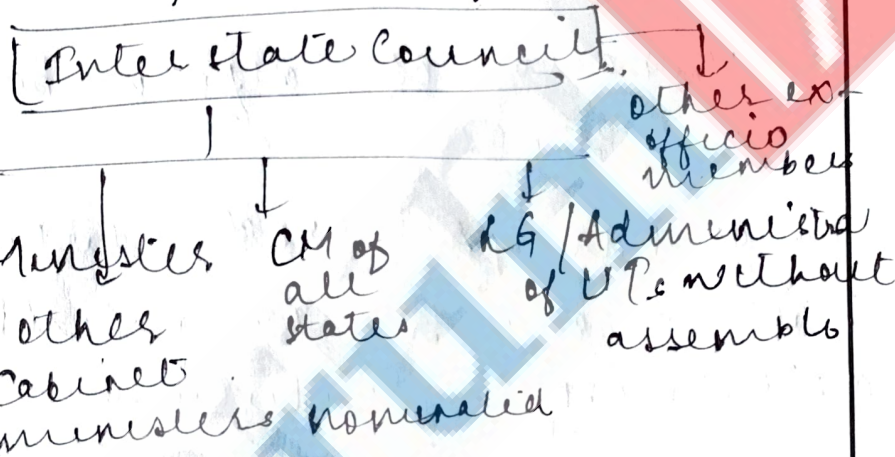 Inter state Council
other ex-
officio
members
Ministers
other
Cabinet
ministers nominated
CM of
all
states
LG / Administra
of UTs without
assembly